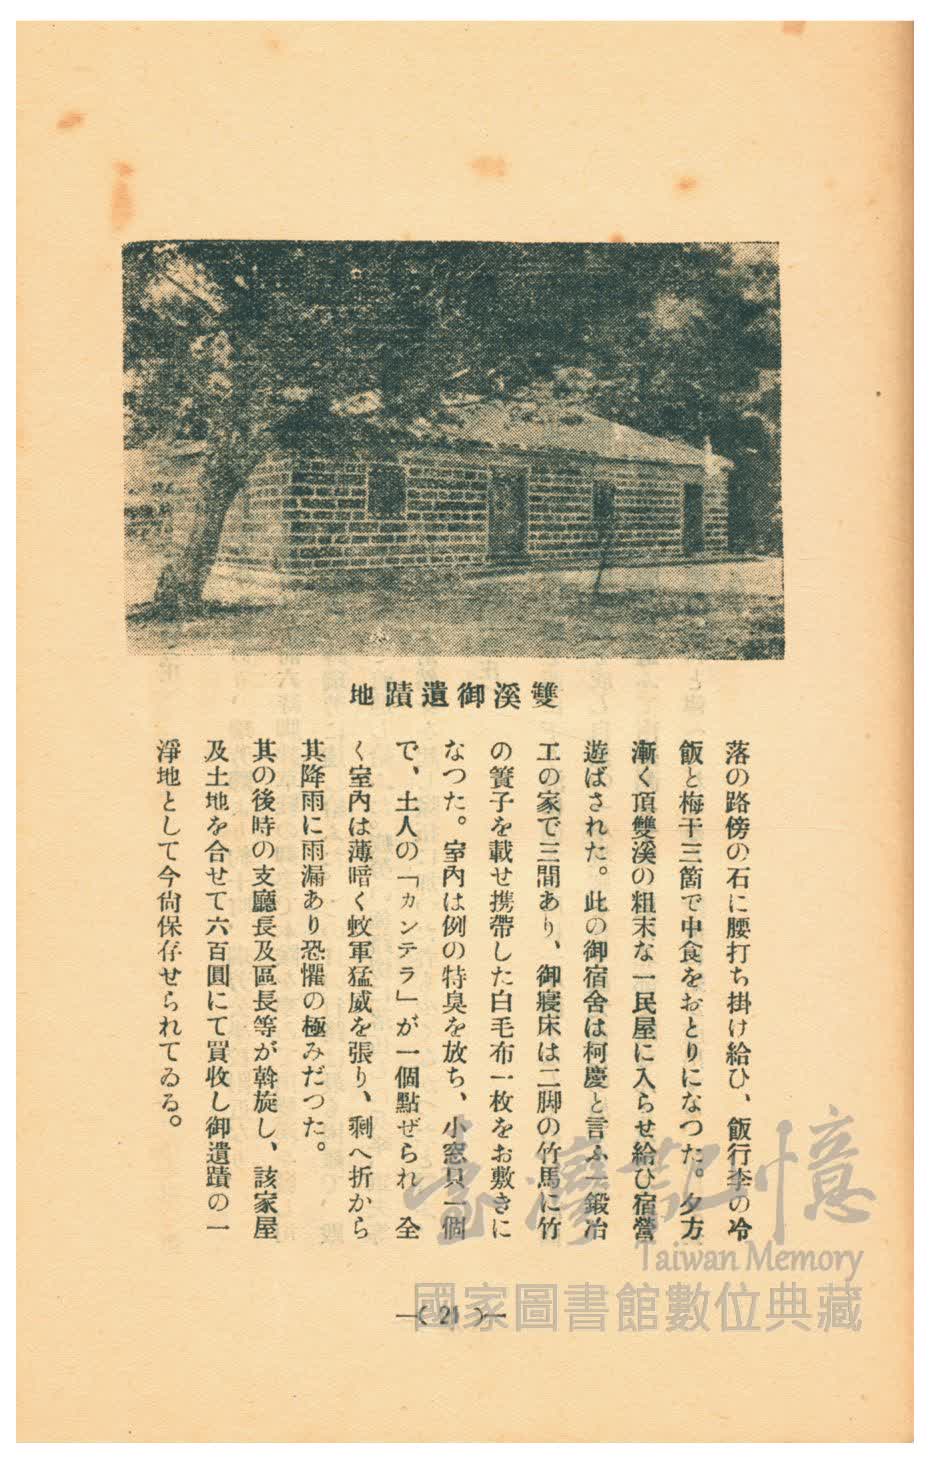 雙溪御遺蹟地
落の路傍の石に腰打ち掛け給ひ、飯行李の冷
飯と梅干三箇で中食をおとりになつた。夕方
漸く頂雙溪の粗末な一民屋に入らせ給ひ宿營
遊ばされた。此の御宿舍は柯慶と言ふ一鍛冶
工の家で三間あり、御寢床は二脚の竹馬に竹
の簀子を載せ携帶した白毛布一枚をお敷きに
なつた。室內は例の特臭を放ち、小窓只一個
で、土人の「カンテラ」が一個點ぜられ、全
く室內は薄暗く蚊軍猛威を張り、剩へ折から
其降雨に雨漏あり恐懼の極みだつた。
其の後時の支廳長及區長等が斡旋し、該家屋
及土地を合せて六百圓にて買收し御遺蹟の一
淨地として今尙保存せられてゐる。
—( 21 )—
臺灣記憶
Taiwan Memory
國家圖書館數位典藏